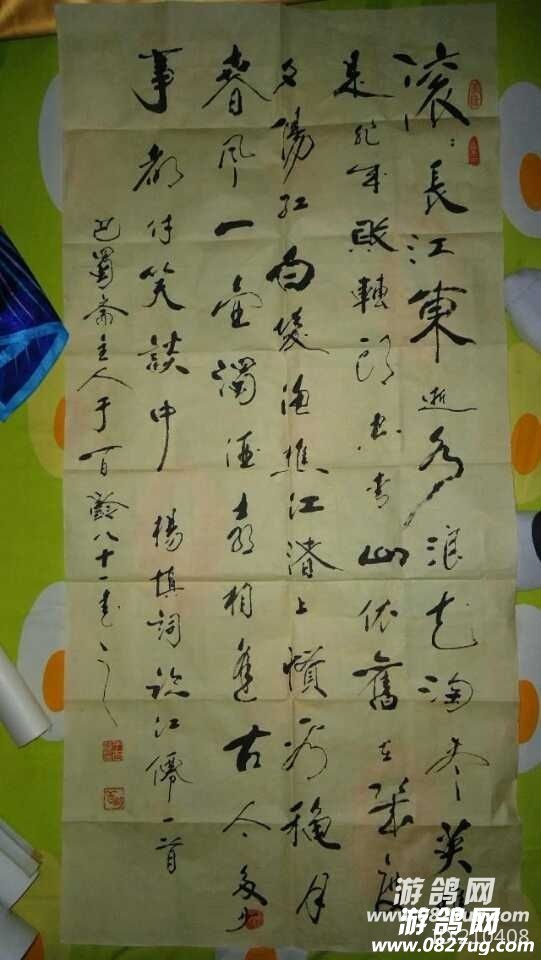 滚滚長江東逝水浪花淘尽英雄
是非成敗轉頭空青山依舊在幾度
夕陽红白髮渔樵江渚上慣看穐月
春风一壶濁酒喜相逢古今多少
事都付笑談中 楊慎詞臨江僊一首
巴蜀斋主人于百齡八十一書
游鸽网
www.0827ug.com
游鸽网
www.0827ug.com